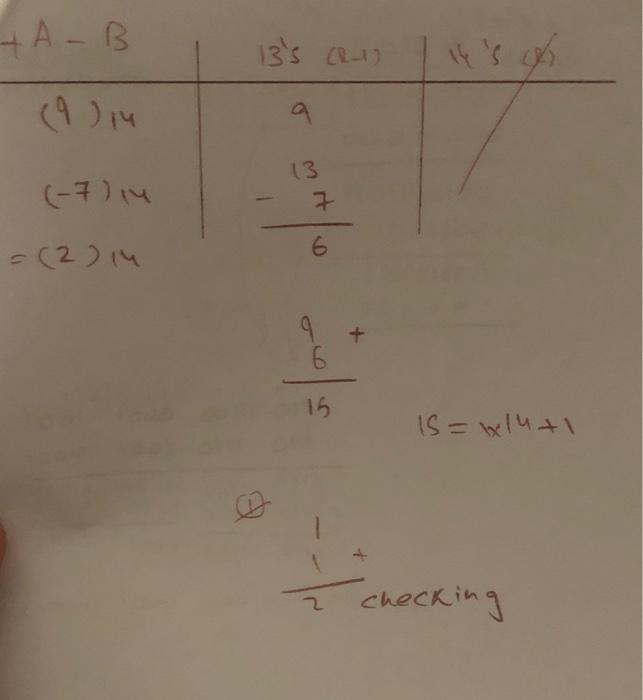 +A - B 13's (R-1) 14's (R)
(9)14 9
13
(-7)14 - 7
= (2)14 6
9 +
6
15
15 = 1x14+1
1
1
1 +
2 checking